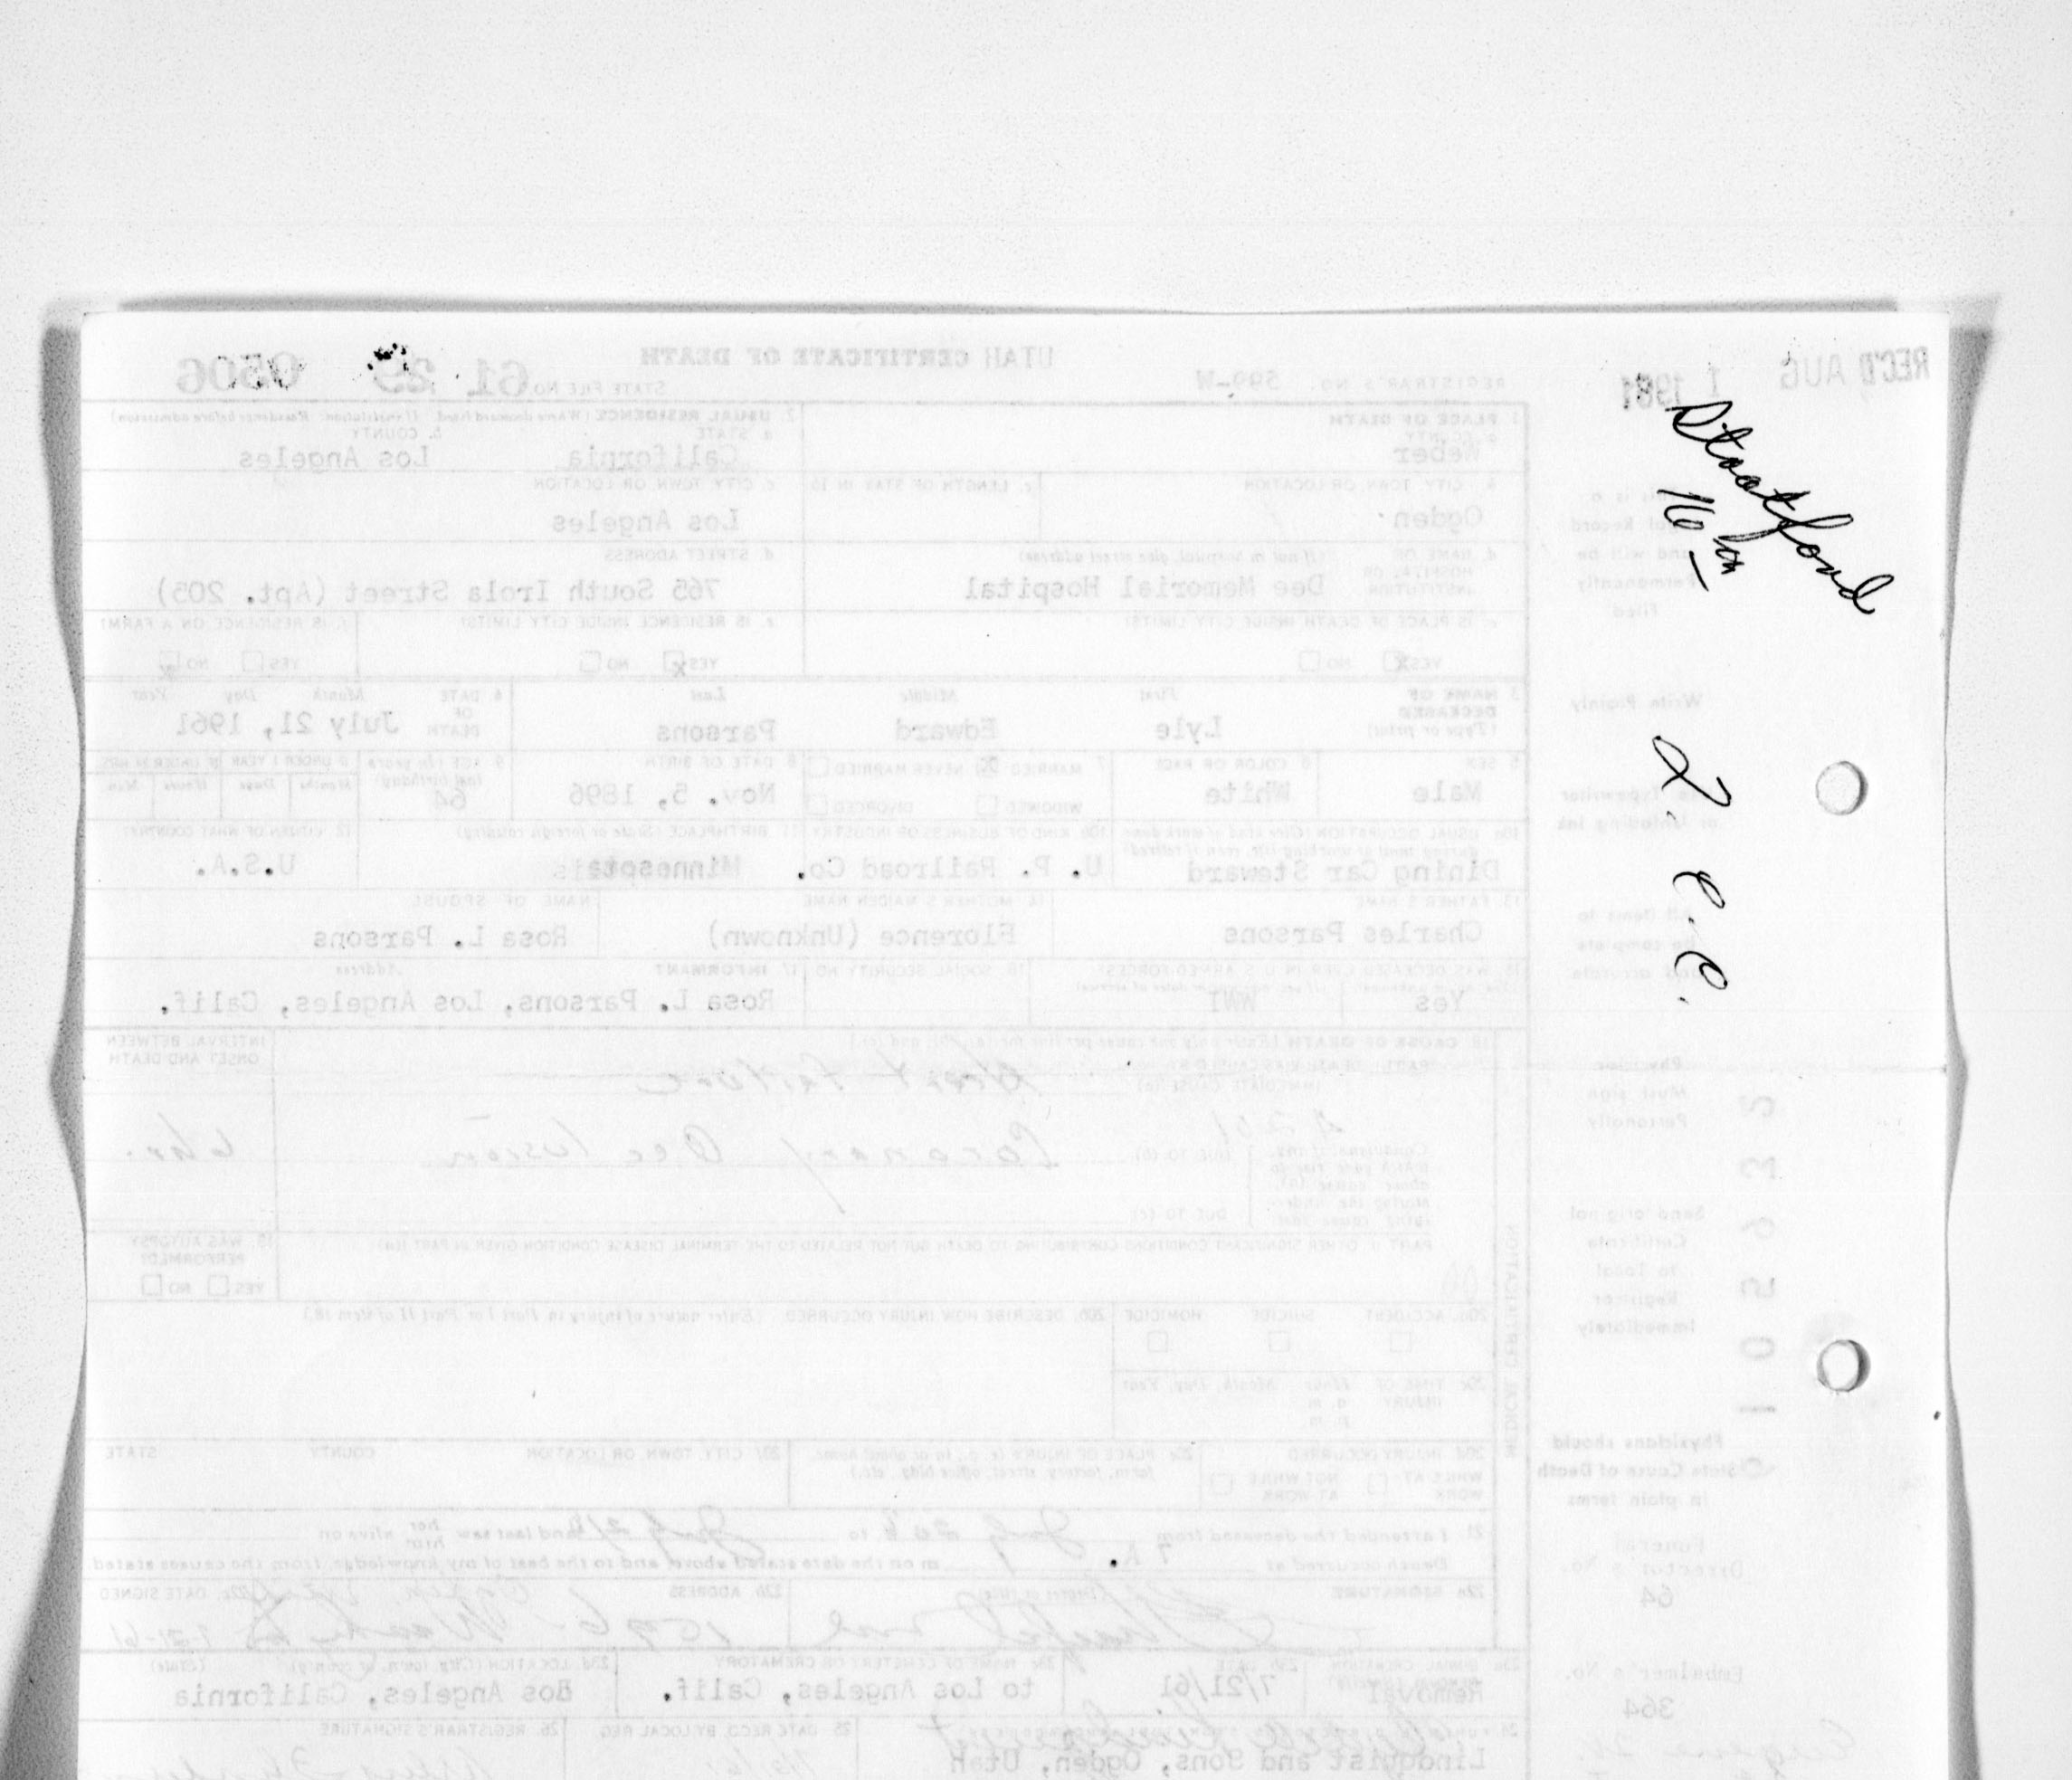 REC'D AUG 1 1961
UTAH CERTIFICATE OF DEATH
REGISTRAR'S NO. 599-W
STATE FILE NO. 61 29 0506
1. PLACE OF DEATH
a. COUNTY
Weber
2. USUAL RESIDENCE (Where deceased lived. If institution: Residence before admission)
a. STATE
California
b. COUNTY
Los Angeles
b. CITY, TOWN, OR LOCATION
Ogden
c. LENGTH OF STAY IN 1b
c. CITY, TOWN, OR LOCATION
Los Angeles
d. NAME OF HOSPITAL OR INSTITUTION
(If not in hospital, give street address)
Dee Memorial Hospital
d. STREET ADDRESS
765 South Irola Street (Apt. 205)
e. IS PLACE OF DEATH INSIDE CITY LIMITS?
YES X NO
e. IS RESIDENCE INSIDE CITY LIMITS?
YES X NO
f. IS RESIDENCE ON A FARM?
YES NO X
3. NAME OF DECEASED
(Type or print)
First Middle Last
Lyle Edward Parsons
4. DATE OF DEATH
Month Day Year
July 21, 1961
5. SEX
Male
6. COLOR OR RACE
White
7. MARRIED X NEVER MARRIED
WIDOWED DIVORCED
8. DATE OF BIRTH
Nov. 5, 1896
9. AGE (In years last birthday)
64
IF UNDER 1 YEAR IF UNDER 24 HRS.
Months Days Hours Min.
10a. USUAL OCCUPATION (Give kind of work done during most of working life, even if retired)
Dining Car Steward
10b. KIND OF BUSINESS OR INDUSTRY
U. P. Railroad Co.
11. BIRTHPLACE (State or foreign country)
12. CITIZEN OF WHAT COUNTRY?
U.S.A.
13. FATHER'S NAME
Charles Parsons
14. MOTHER'S MAIDEN NAME
Florence (Unknown)
NAME OF SPOUSE
Rosa L. Parsons
15. WAS DECEASED EVER IN U. S. ARMED FORCES?
Yes WWI
16. SOCIAL SECURITY NO.
17. INFORMANT Address
Rosa L. Parsons, Los Angeles, Calif.
18. CAUSE OF DEATH (Enter only one cause per line for (a), (b), and (c).)
PART I. DEATH WAS CAUSED BY:
IMMEDIATE CAUSE (a)
Heart Failure
INTERVAL BETWEEN ONSET AND DEATH
4201
Conditions, if any, which gave rise to above cause (a), stating the underlying cause last
DUE TO (b)
Coronary Occlusion
6 hr.
DUE TO (c)
PART II. OTHER SIGNIFICANT CONDITIONS CONTRIBUTING TO DEATH BUT NOT RELATED TO THE TERMINAL DISEASE CONDITION GIVEN IN PART I(a)
19. WAS AUTOPSY PERFORMED?
YES NO
20a. ACCIDENT SUICIDE HOMICIDE
20b. DESCRIBE HOW INJURY OCCURRED (Enter nature of injury in Part I or Part II of item 18.)
20c. TIME OF INJURY Hour Month, Day, Year
a. m.
p. m.
20d. INJURY OCCURRED
WHILE AT WORK NOT WHILE AT WORK
20e. PLACE OF INJURY (e. g., in or about home, farm, factory, street, office bldg., etc.)
20f. CITY, TOWN, OR LOCATION COUNTY STATE
21. I attended the deceased from July to July 21 and last saw her him alive on
Death occurred at 7 A. m on the date stated above; and to the best of my knowledge, from the causes stated
22a. SIGNATURE (Degree or title)
22b. ADDRESS
22c. DATE SIGNED
7-21-61
23a. BURIAL, CREMATION, REMOVAL (Specify)
Removal
23b. DATE
7/21/61
23c. NAME OF CEMETERY OR CREMATORY
to Los Angeles, Calif.
23d. LOCATION (City, town, or county) (State)
Los Angeles, California
24. FUNERAL DIRECTOR'S SIGNATURE AND ADDRESS
Lindquist and Sons, Ogden, Utah
25. DATE RECD. BY LOCAL REG.
26. REGISTRAR'S SIGNATURE
MEDICAL CERTIFICATION
This is a
Legal Record
and will be
Permanently
Filed
Write Plainly
Use Typewriter
or Unfading Ink
All Items to
be complete
and accurate
Physician
Must sign
Personally
Send original
Certificate
to Local
Registrar
Immediately
Physicians should
State Cause of Death
in plain terms
Funeral
Director's No.
64
Embalmer's No.
364